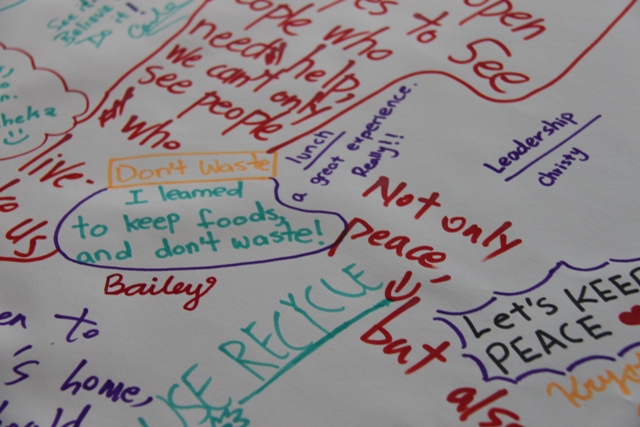 See it!
Believe it!
Do it!!
open
es to See
people who
need help,
we can't only
see people
who
live.
us
Don't Waste
I learned
to keep foods,
and don't waste!
Bailey
lunch
a great experience.
Really!!
Leadership
Christy
Not only
peace,
but also
Let's KEEP
PEACE
USE RECYCLE
en to
's home,